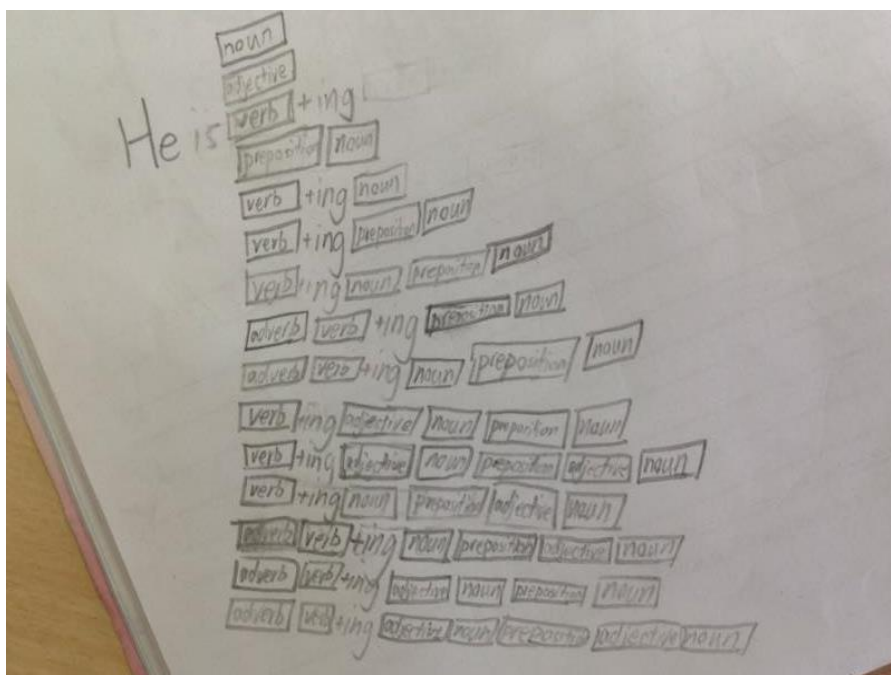 noun
adjective
He is verb +ing
preposition noun
verb +ing noun
verb +ing preposition noun
verb +ing noun preposition noun
adverb verb +ing preposition noun
adverb verb +ing noun preposition noun
verb +ing adjective noun preposition noun
verb +ing adjective noun preposition adjective noun
verb +ing noun preposition adjective noun
adverb verb +ing noun preposition adjective noun
adverb verb +ing adjective noun preposition noun
adverb verb +ing adjective noun preposition adjective noun